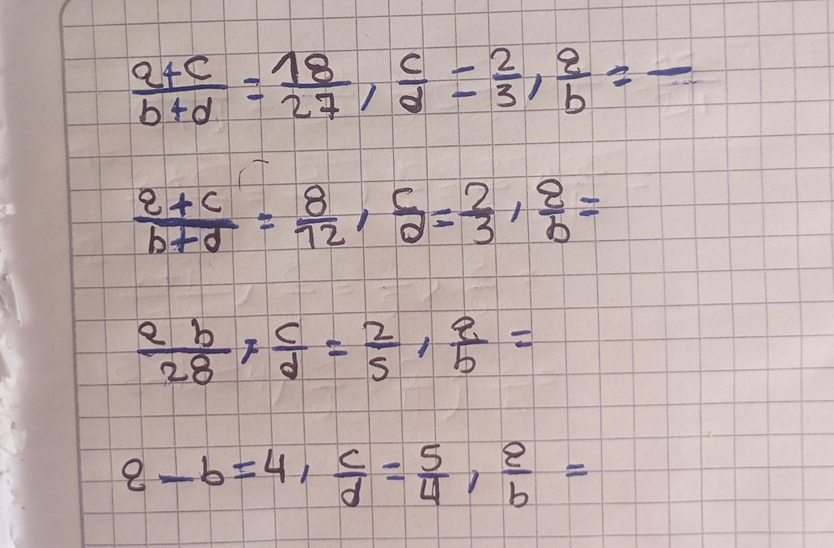 a+c/b+d = 18/27, c/d = 2/3, a/b = —
a+c/b+d = 8/12, c/d = 2/3, a/b =
a b/28, c/d = 2/5, a/b =
a - b = 4, c/d = 5/4, a/b =